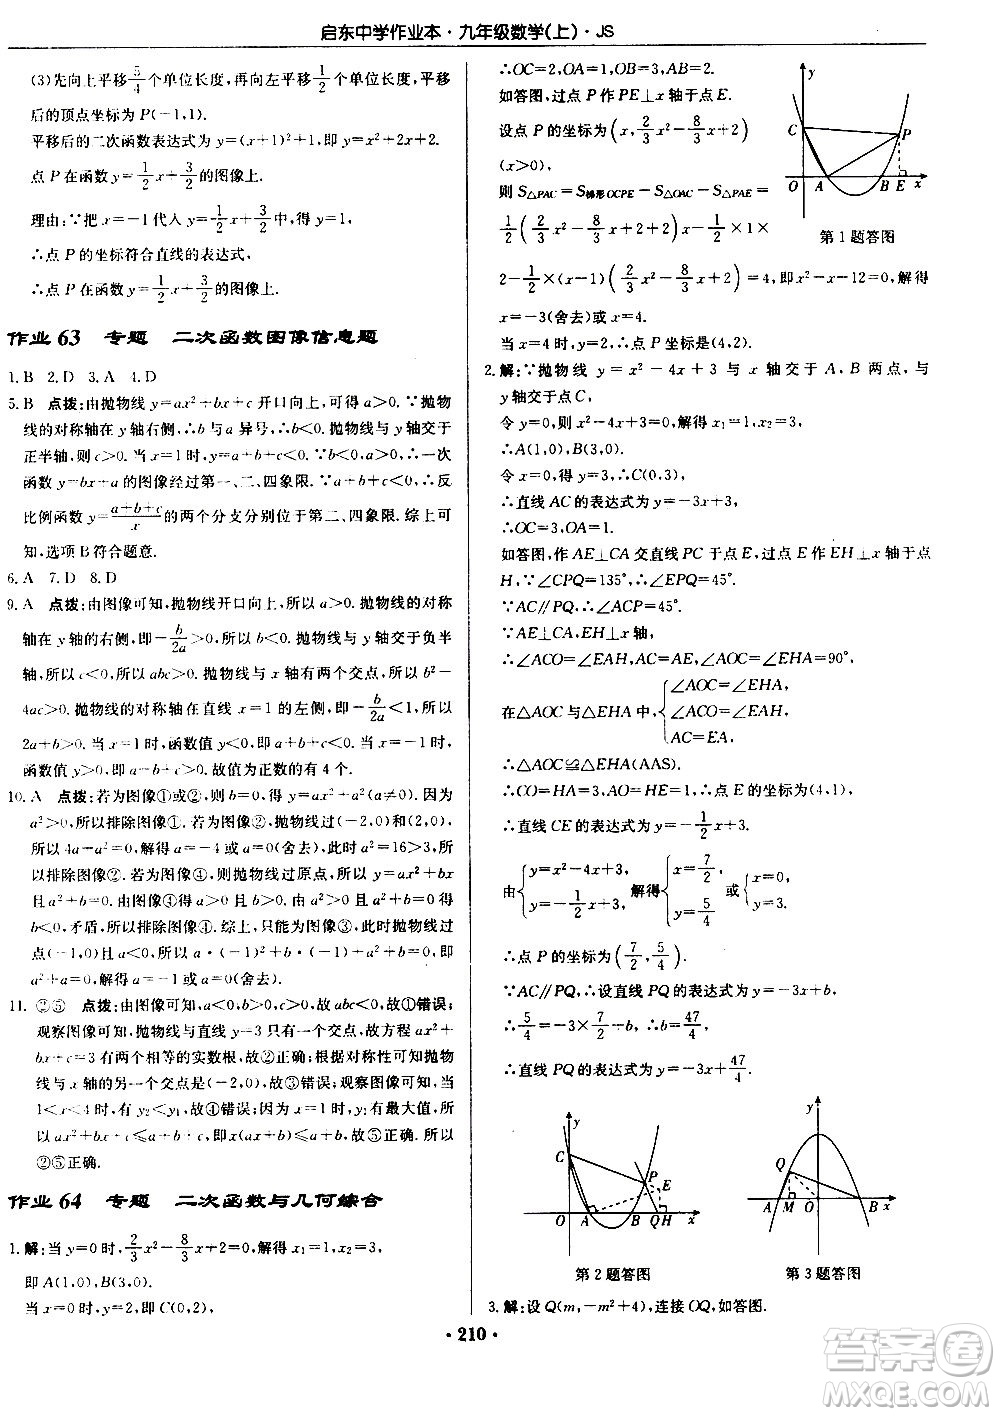 启东中学作业本·九年级数学(上)·JS
(3)先向上平移5/4个单位长度，再向左平移1/2个单位长度，平移
后的顶点坐标为P(－1,1).
平移后的二次函数表达式为y=(x+1)²+1,即y=x²+2x+2.
点P在函数y=1/2x+3/2的图像上.
理由:∵把x=－1代入y=1/2x+3/2,得y=1,
∴点P的坐标符合直线的表达式,
∴点P在函数y=1/2x+3/2的图像上.
作业63 专题 二次函数图像信息题
1.B 2.D 3.A 4.D
5.B 点拨:由抛物线y=ax²+bx+c开口向上,可得a>0.∵抛物
线的对称轴在y轴右侧,∴b与a异号,∴b<0.∵抛物线与y轴交于
正半轴,则c>0.当x=1时,y<0,∴a+b+c<0,∴一次
函数y=bx+a的图像经过第一、二、四象限.∵a+b+c<0,∴反
比例函数y=(a+b+c)/x的两个分支分别位于第二、四象限.综上可
知,选项B符合题意.
6.A 7.D 8.D
9.A 点拨:由图像可知,抛物线开口向上,所以a>0.抛物线的对称
轴在y轴的右侧,即－b/2a>0,所以b<0.抛物线与y轴交于负半
轴,所以c<0,所以abc>0.抛物线与x轴有两个交点,所以b²－
4ac>0.抛物线的对称轴在直线x=1的左侧,即－b/2a<1,所以
2a+b>0.当x=1时,函数值y<0,即a+b+c<0.当x=－1时,
函数值y>0,即a－b+c>0.故值为正数的有4个.
10.A 点拨:若为图像①或②,则b=0,y=ax²+a²(a≠0).因为
a²>0,所以排除图像①.若为图像②,抛物线过(－2,0)和(2,0),
所以4a+a²=0,解得a=－4或a=0(舍去),此时a²=16>3,所
以排除图像②.若为图像④,则抛物线过原点,所以a²+b=0.由
图像④得a>0且b>0,所以a²+b>0,这与a²+b=
0,矛盾,所以排除图像④.综上,只能为图像③,此时抛物线过
点(－1,0)且a<0,所以a·(－1)²+b·(－1)+a²+b=0,即
a²+a=0,解得a=－1或a=0(舍去).
11.②⑤ 点拨:由图像可知,a<0,b>0,c>0,故abc<0,故①错误;
观察图像可知,抛物线与直线y=3只有一个交点,故方程ax²+
bx+c=3有两个相等的实数根,故②正确;根据对称性可知抛物
线与x轴的另一个交点是(－2,0),故③错误;观察图像可知,当
1<x<4时,有y₂<y₁,故④错误;因为x=1时,y₁有最大值,所
以ax²+bx+c≤a+b+c,即x(ax+b)≤a+b,故⑤正确.所以
②⑤正确.
作业64 专题 二次函数与几何综合
1.解:当y=0时,2/3x²－8/3x+2=0,解得x₁=1,x₂=3,
即A(1,0),B(3,0).
当x=0时,y=2,即C(0,2),
∴OC=2,OA=1,OB=3,AB=2.
如答图,过点P作PE⊥x轴于点E.
设点P的坐标为(x,2/3x²－8/3x+2)
(x>0),
则S△PAC=S梯形OCPE－S△OAC－S△PAE=
1/2(2/3x²－8/3x+2+2)x－1/2×1×
2－1/2×(x－1)(2/3x²－8/3x+2)=4,即x²－x－12=0,解得
x=－3(舍去)或x=4.
当x=4时,y=2.∴点P坐标是(4,2).
y
C
P
O
A
B
E
x
第1题答图
2.解:∵抛物线y=x²－4x+3与x轴交于A,B两点,与
y轴交于点C,
令y=0,则x²－4x+3=0,解得x₁=1,x₂=3,
∴A(1,0),B(3,0).
令x=0,得y=3,∴C(0,3),
∴直线AC的表达式为y=－3x+3,
∴OC=3,OA=1.
如答图,作AE⊥CA交直线PC于点E,过点E作EH⊥x轴于点
H,∵∠CPQ=135°,∴∠EPQ=45°.
∵AC∥PQ,∴∠ACP=45°.
∵AE⊥CA,EH⊥x轴,
∴∠ACO=∠EAH,AC=AE,∠AOC=∠EHA=90°,
在△AOC与△EHA中,{∠AOC=∠EHA,
∠ACO=∠EAH,
AC=EA,
∴△AOC≌△EHA(AAS).
∴CO=HA=3,AO=EH=1,∴点E的坐标为(4,1),
∴直线CE的表达式为y=－1/2x+3.
由{y=x²－4x+3, y=－1/2x+3, 解得{x=7/2, y=5/4 或{x=0, y=3.
∴点P的坐标为(7/2,5/4).
∵AC∥PQ,∴设直线PQ的表达式为y=－3x+b,
∴5/4=－3×7/2+b,∴b=47/4,
∴直线PQ的表达式为y=－3x+47/4.
y
C
P
E
O
A
B
QH
x
第2题答图
y
Q
A
M
O
B
x
第3题答图
3.解:设Q(m,－m²+4),连接OQ,如答图.
·210·
答案圈
MXQE.COM